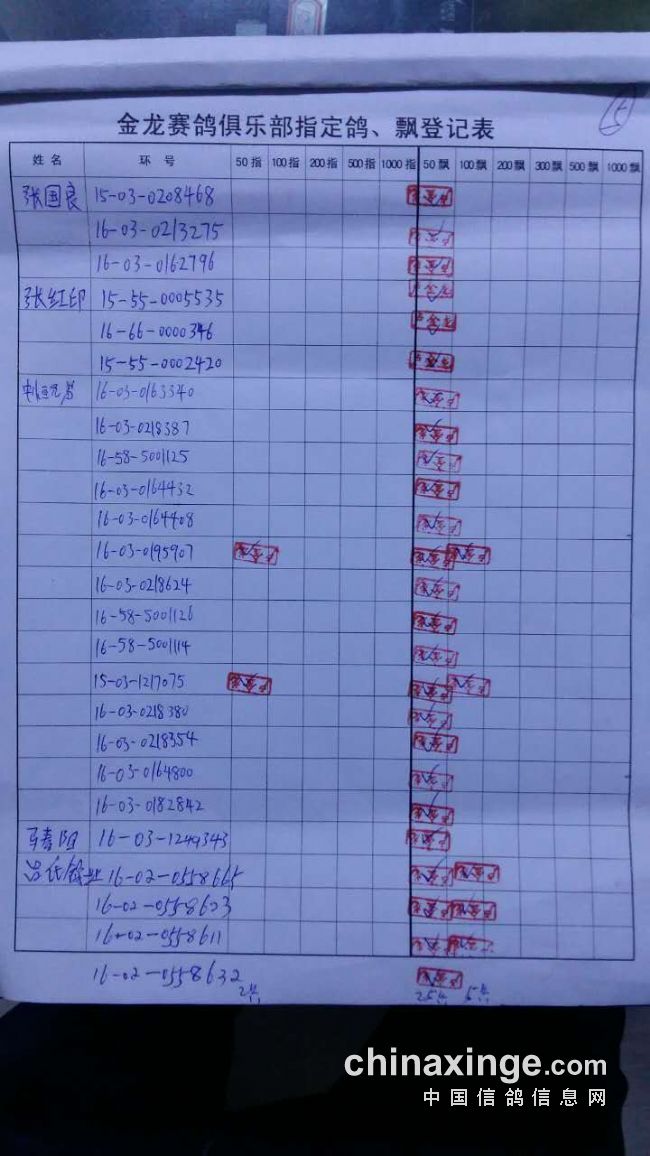 金龙赛鸽俱乐部指定鸽、飘登记表
姓名 环号 50指 100指 200指 500指 1000指 50飘 100飘 200飘 300飘 500飘 1000飘
张国良 15-03-0208468
16-03-0213275
16-03-0162796
张红印 15-55-0005535
16-66-0000346
15-55-0002420
16-03-0163340
16-03-0218387
16-58-5001125
16-03-0164432
16-03-0164408
16-03-0195907
16-03-0218624
16-58-5001126
16-58-5001114
15-03-1217075
16-03-0218380
16-03-0218354
16-03-0164800
16-03-0182842
16-03-1249343
16-02-0558665
16-02-0558623
16-02-0558611
16-02-0558632
chinaxinge.com
中国信鸽信息网